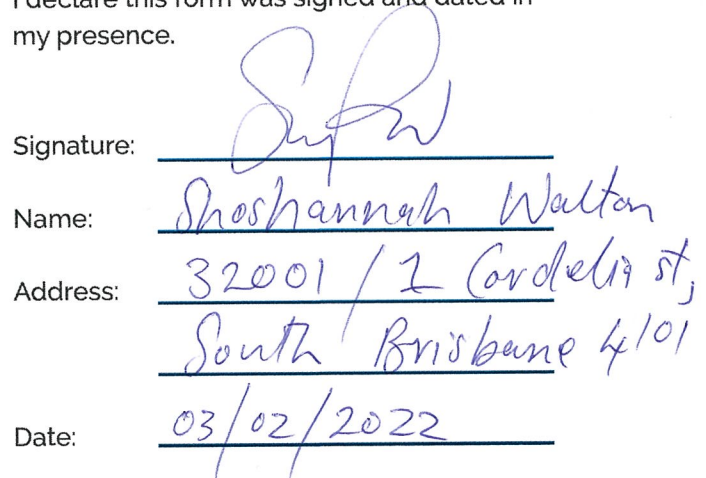 I declare this form was signed and dated in
my presence.
Signature:
Name: Shoshannah Walton
Address: 32001 / 1 Cordelia st,
South Brisbane 4101
Date: 03/02/2022